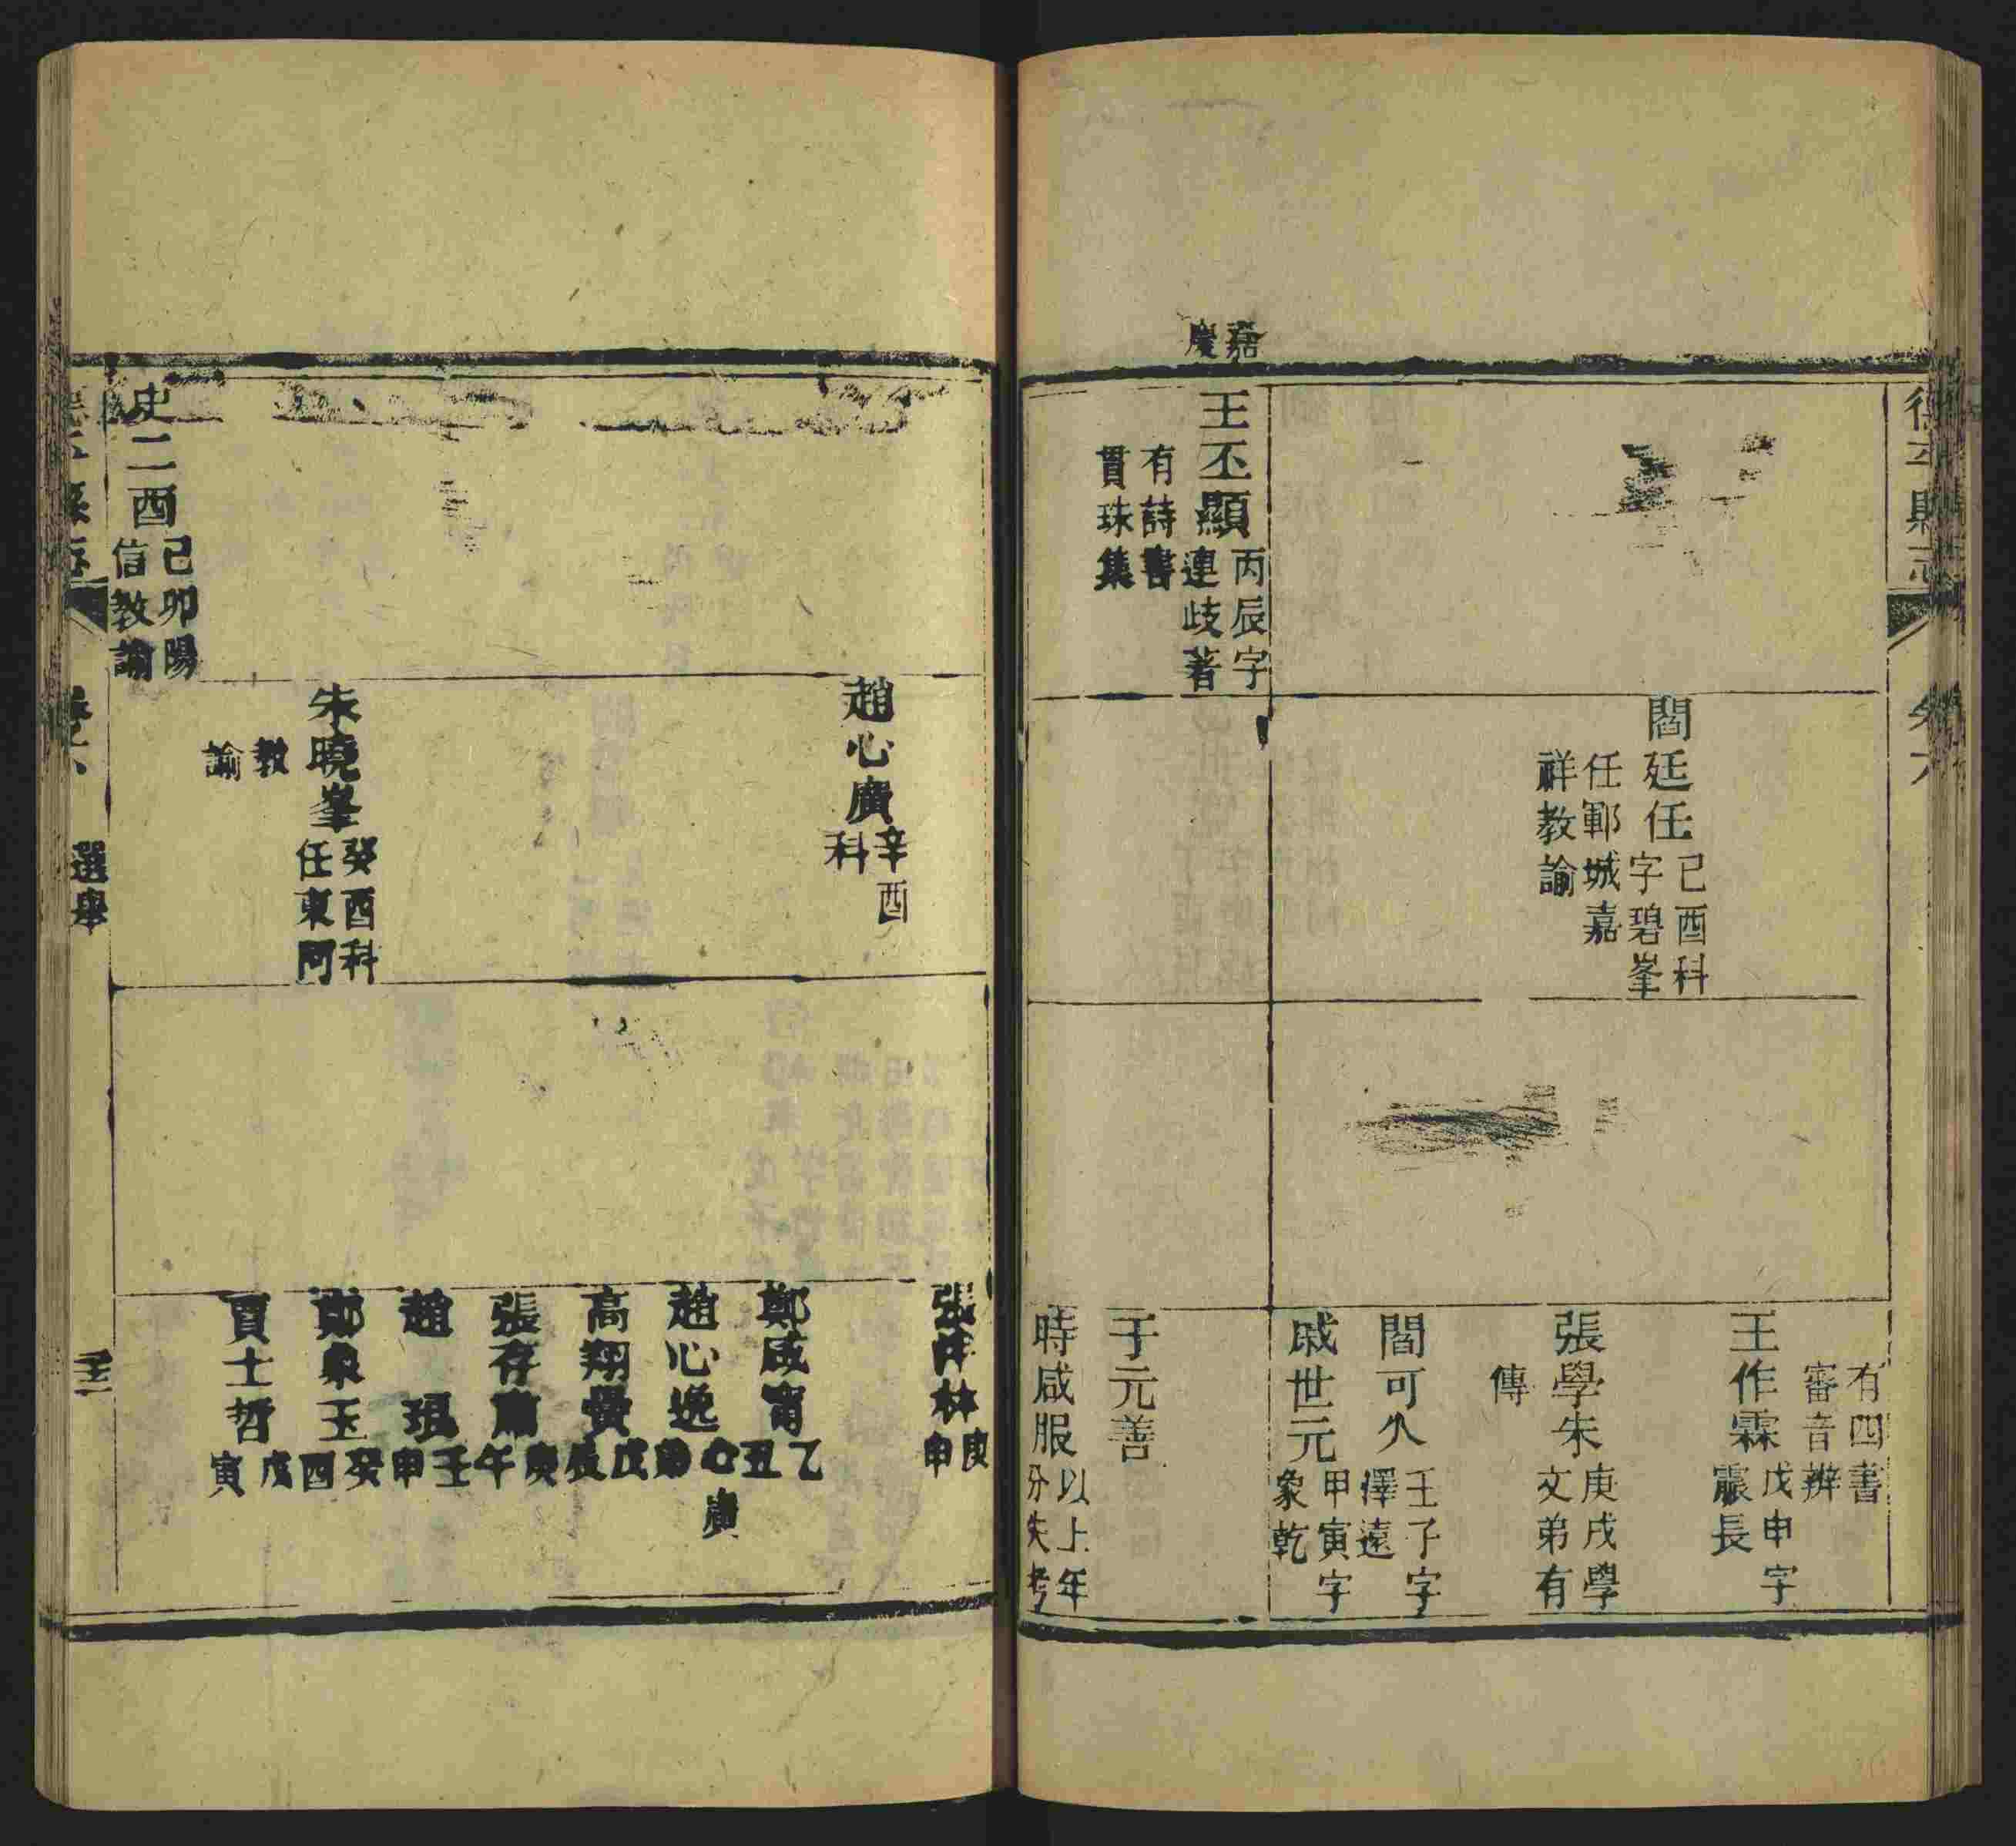 德平縣志
卷六
閻廷任己酉科
字碧峯
任鄆城嘉
祥教諭
有四書
審音辨
王作霖戊申字
震長
張學朱庚戌學
文弟有
傳
閻可久壬子字
澤遠
戚世元甲寅字
象乾
嘉慶
王丕顯丙辰字
連歧著
有詩書
貫珠集
于元善
時咸服以上年
分失考
趙心廣辛酉
科
朱曉峯癸酉科
任東阿
教
諭
史二酉己卯陽
信教諭
張沣林庚
申
鄭咸甯乙
丑
趙心逸心
廣
弟
高翔雯戊
辰
張存肅庚
午
趙 琨壬
申
鄭泉玉癸
酉
賈士哲戊
寅
選舉